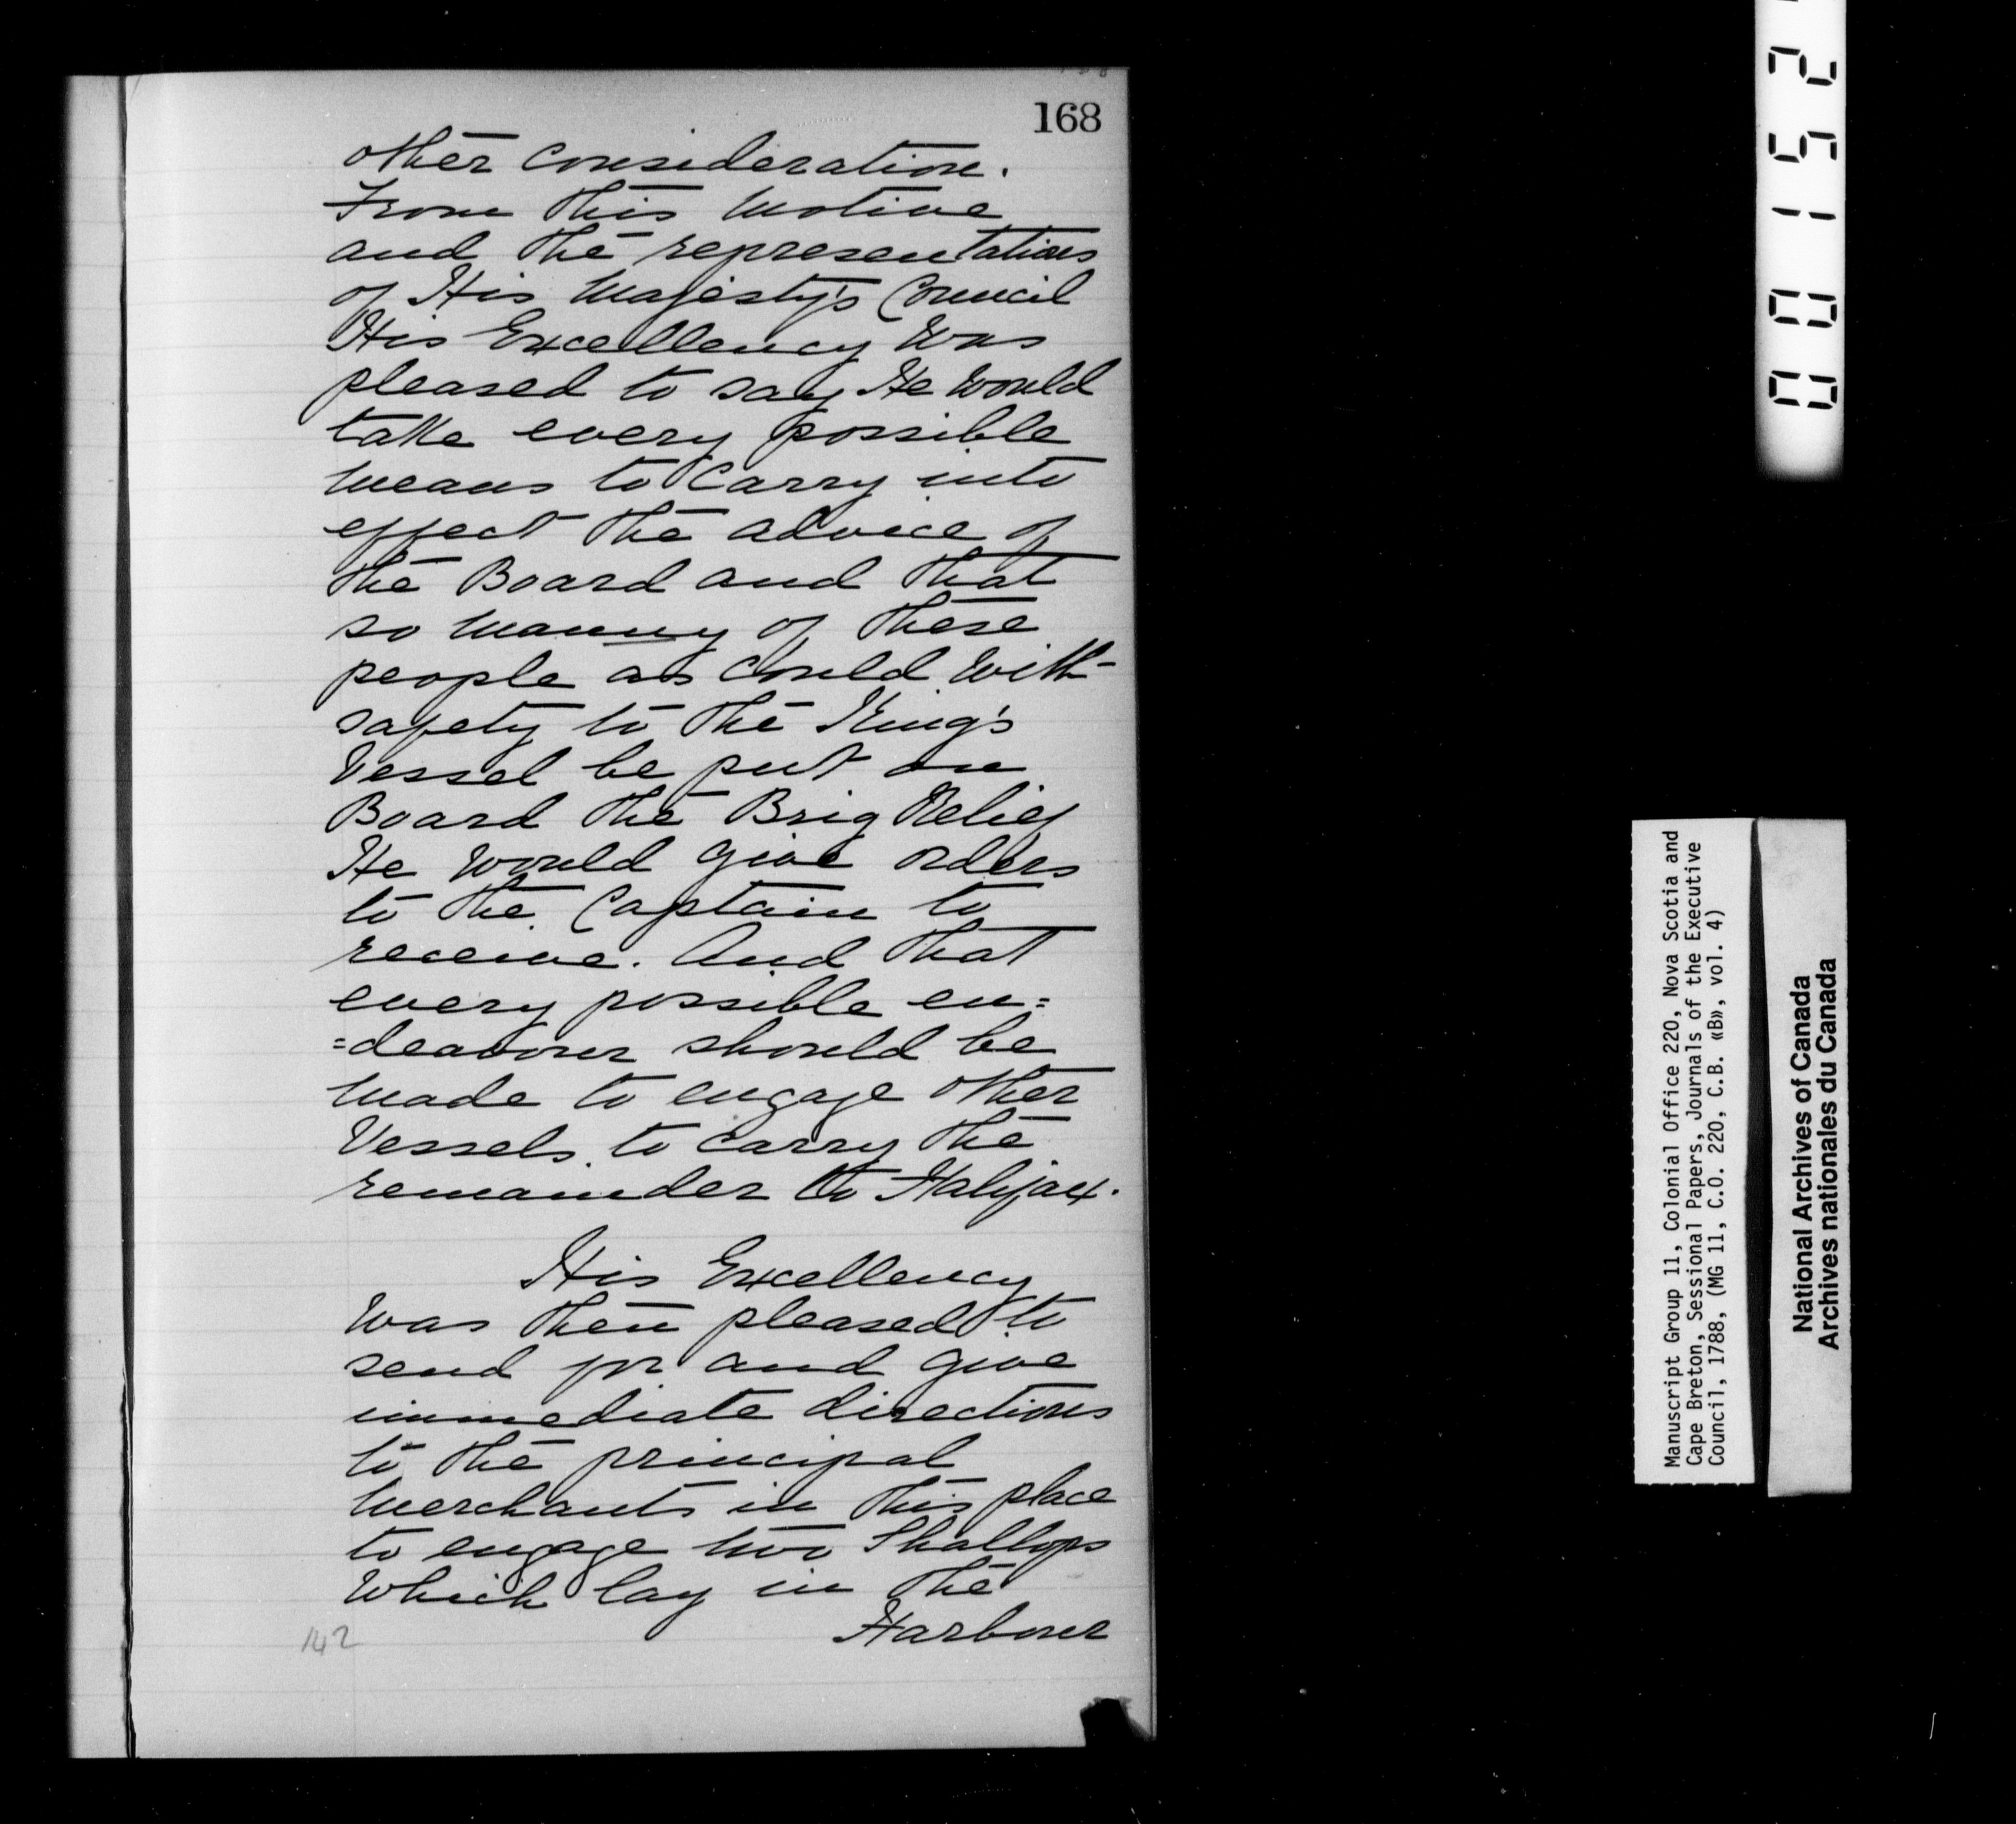 168
other consideration.
From this Motive
and the representations
of His Majesty's Council
His Excellency was
pleased to say He would
take every possible
means to carry into
effect the advice of
the Board and that
so manny of these
people as could with
safety to the King's
Vessel be put on
Board the Brig Relief
He would give orders
to the Captain to
receive. And that
every possible en=
=deavour should be
made to engage other
Vessels to carry the
remainder to Halifax.
His Excellency
was then pleased to
send for and give
immediate directions
to the principal
Merchants in this place
to engage two Shallops
which lay in the
Harbour
142
00152
Manuscript Group 11, Colonial Office 220, Nova Scotia and
Cape Breton, Sessional Papers, Journals of the Executive
Council, 1788, (MG 11, C.O. 220, C.B. «B», vol. 4)
National Archives of Canada
Archives nationales du Canada